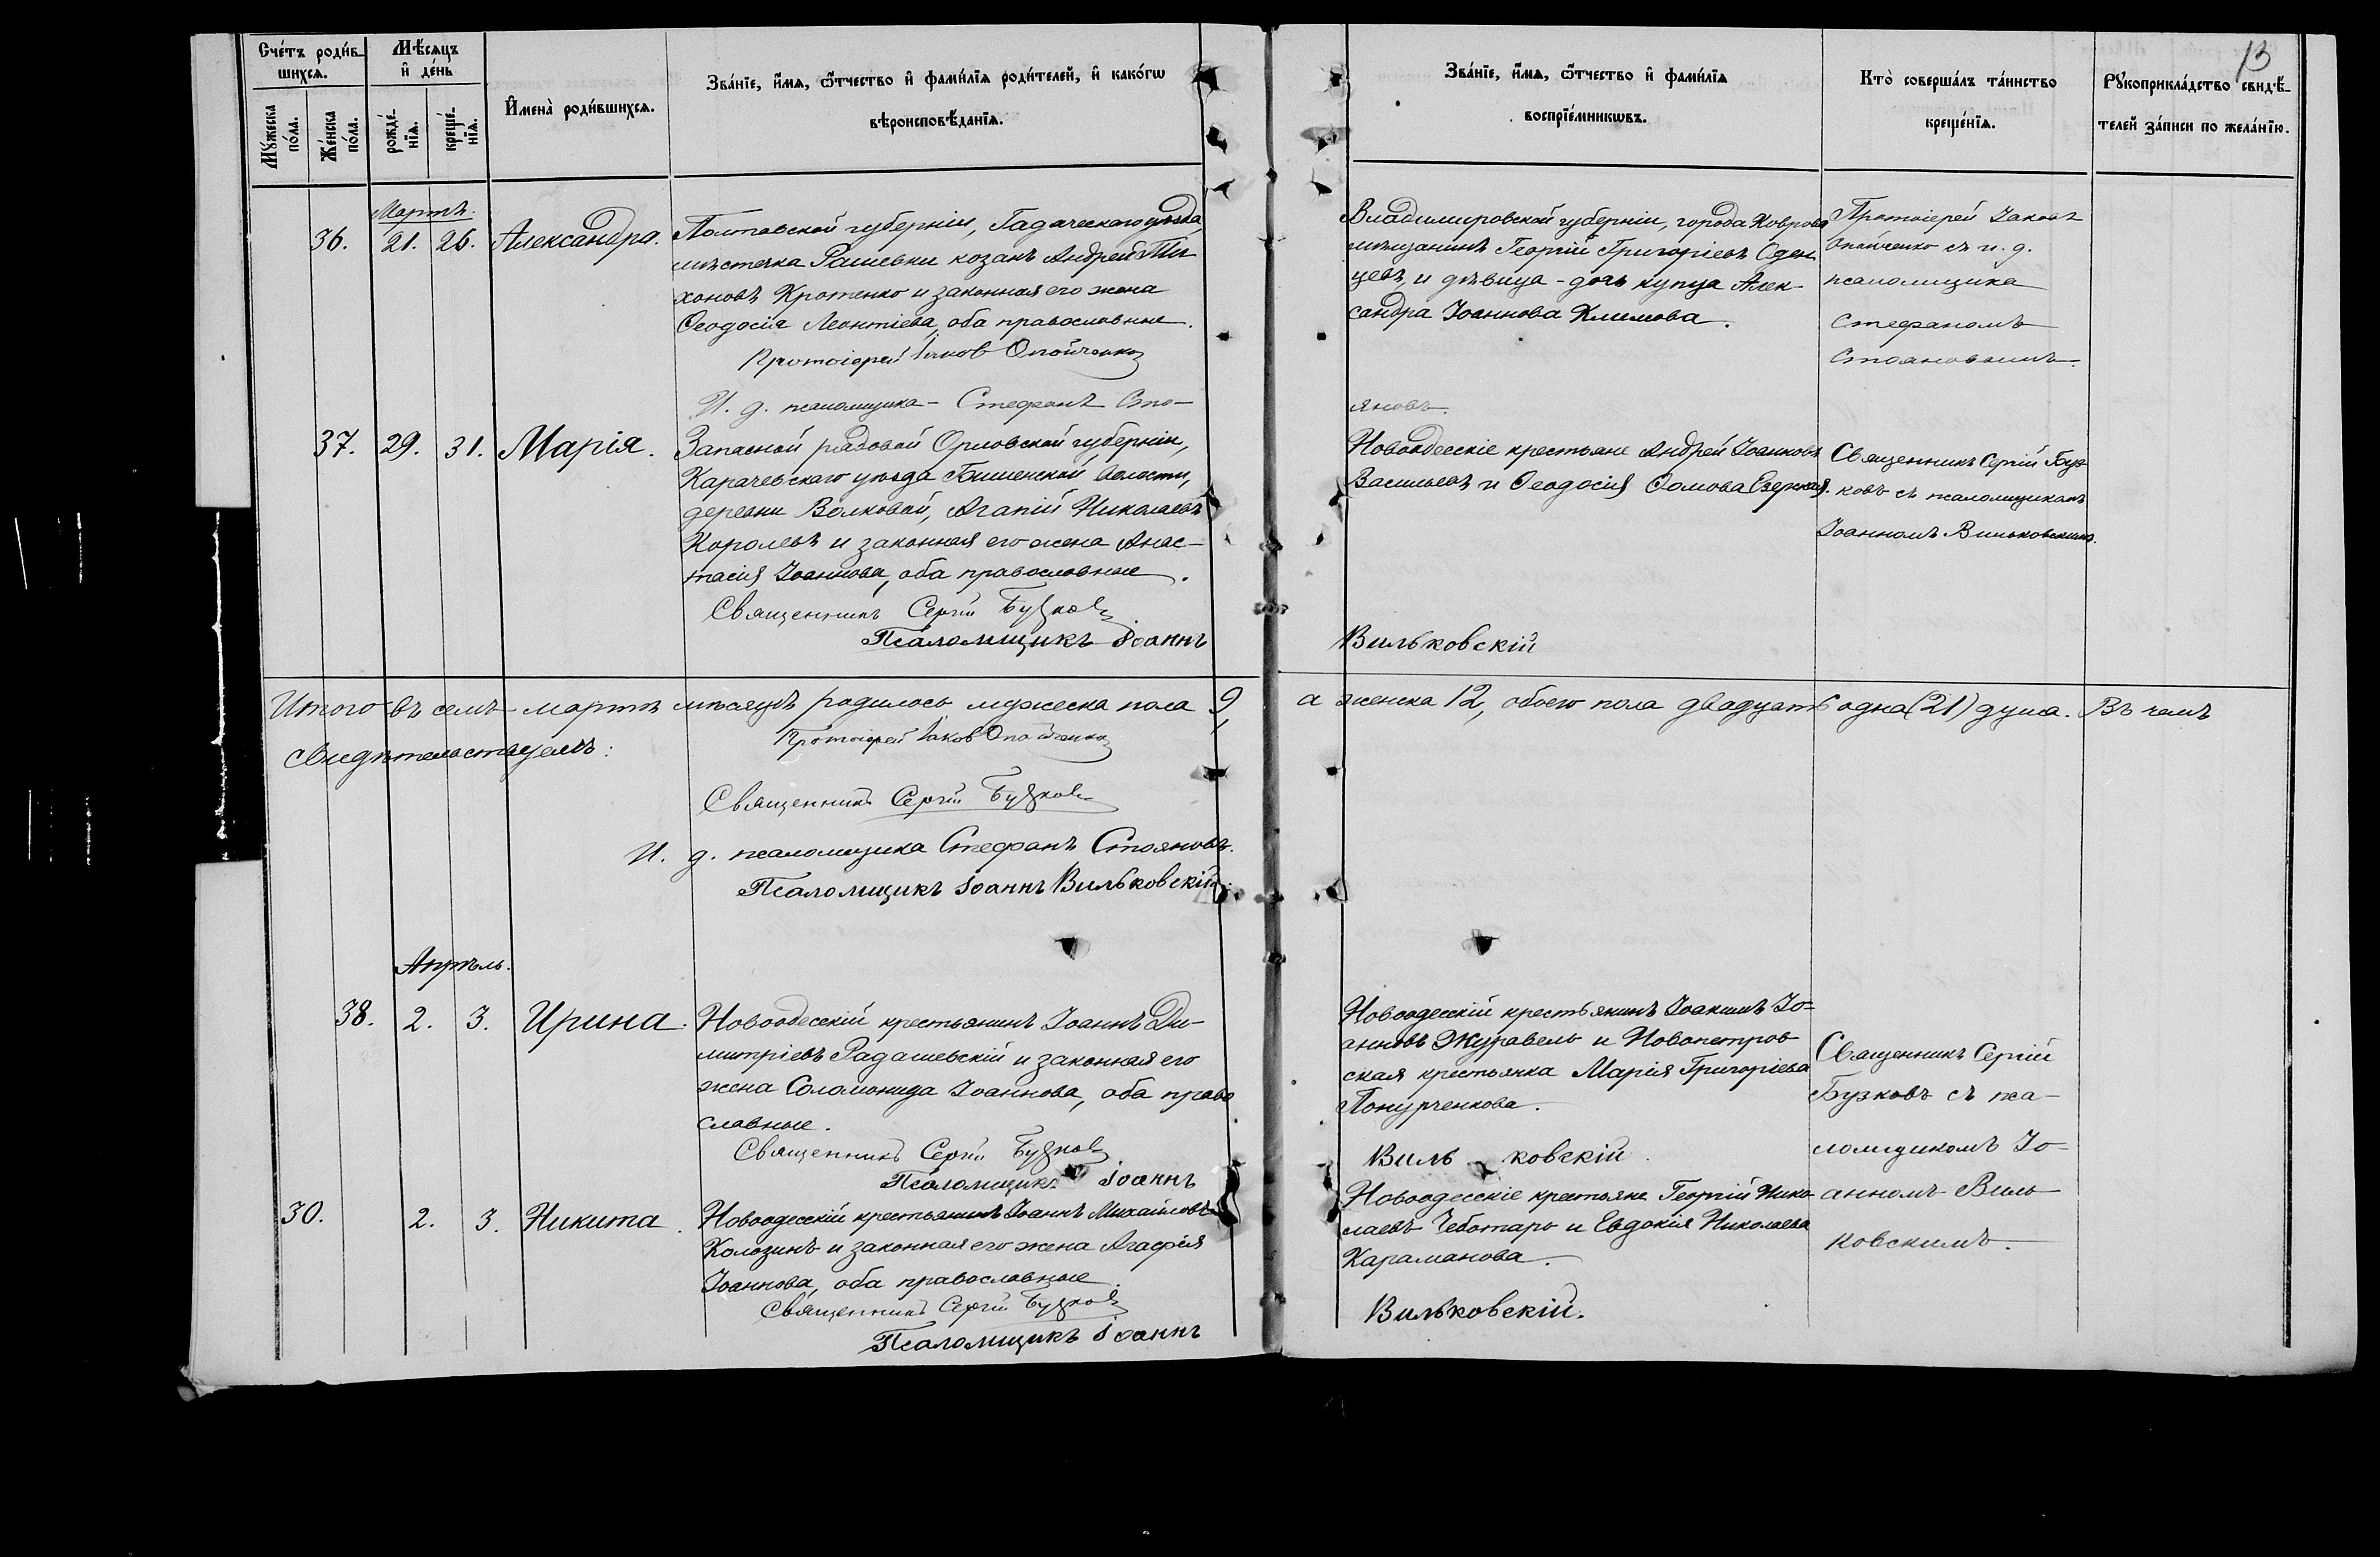 13
Счетъ родив-
шихся.
Мѣсяцъ
и день
Имена родившихся.
Званіе, имя, отчество и фамилія родителей, и какогѡ
вѣроисповѣданія.
Мужеска
пола.
Женска
пола.
рожде-
нія.
креще-
нія.
Званіе, имя, отчество и фамилія
воспріемникѡвъ.
Кто совершалъ таинство
крещенія.
Рукоприкладство свидѣ-
телей записи по желанію.
Мартъ.
36. 21. 26. Александра.
Полтавской губерніи, Гадячскаго уѣзда,
мѣстечка Рашевки козакъ Андрей Ти-
хоновъ Кротенко и законная его жена
Ѳеодосія Леонтіева, оба православные.
Протоіерей Іаков Опойченко
И. д. псаломщика - Стефанъ Сто-
Владимировской губерніи, города Коврова
мѣщанинъ Георгій Григоріевъ Оден-
цевъ, и дѣвица - дочь купца Алек-
сандра Іоаннова Климова.
яновъ.
Протоіерей Іаковъ
Опойченко съ и. д.
псаломщика
Стефаномъ
Стояновымъ.
37. 29. 31. Марія.
Запасной рядовой Орловской губерніи,
Карачевскаго уѣзда волости,
деревни Волковой, Агапій Николаевъ
Королевъ и законная его жена Анас-
тасія Іоаннова, оба православные.
Священникъ Сергій Бузковъ
Псаломщикъ Іоаннъ
Новоодесскіе крестьяне Андрей Іоанновъ
Васильевъ и Ѳеодосія Ѳомова
Вильковскій
Священникъ Сергій Буз-
ковъ съ псаломщикомъ
Іоанномъ Вильковскимъ.
Итого въ семъ мартѣ мѣсяцѣ родилось мужеска пола 9, а женска 12, обоего пола двадцать одна (21) душа. Въ чемъ
свидѣтельствуемъ:
Протоіерей Іаков Опойченко
Священникъ Сергій Бузковъ
И. д. псаломщика Стефанъ Стояновъ.
Псаломщикъ Іоаннъ Вильковскій.
Апрѣль.
38. 2. 3. Ирина.
Новоодесскій крестьянинъ Іоаннъ Ди-
митріевъ Радашевскій и законная его
жена Соломонида Іоаннова, оба право
славные.
Священникъ Сергій Бузковъ
Псаломщикъ Іоаннъ
Новоодесскій крестьянинъ Іоакимъ Іо-
анновъ Журавель и Новопетров
ская крестьянка Марія Григоріева
Понурченкова.
Виль ковскій.
Священникъ Сергій
Бузковъ съ пса-
ломщикомъ Іо-
анномъ Виль
ковскимъ.
30. 2. 3. Никита.
Новоодесскій крестьянинъ Іоаннъ Михайловъ
Колозинъ и законная его жена Агафія
Іоаннова, оба православные.
Священникъ Сергій Бузковъ
Псаломщикъ Іоаннъ
Новоодесскіе крестьяне Георгій Нико
лаевъ Чеботарь и Евдокія Николаева
Караманова.
Вильковскій.